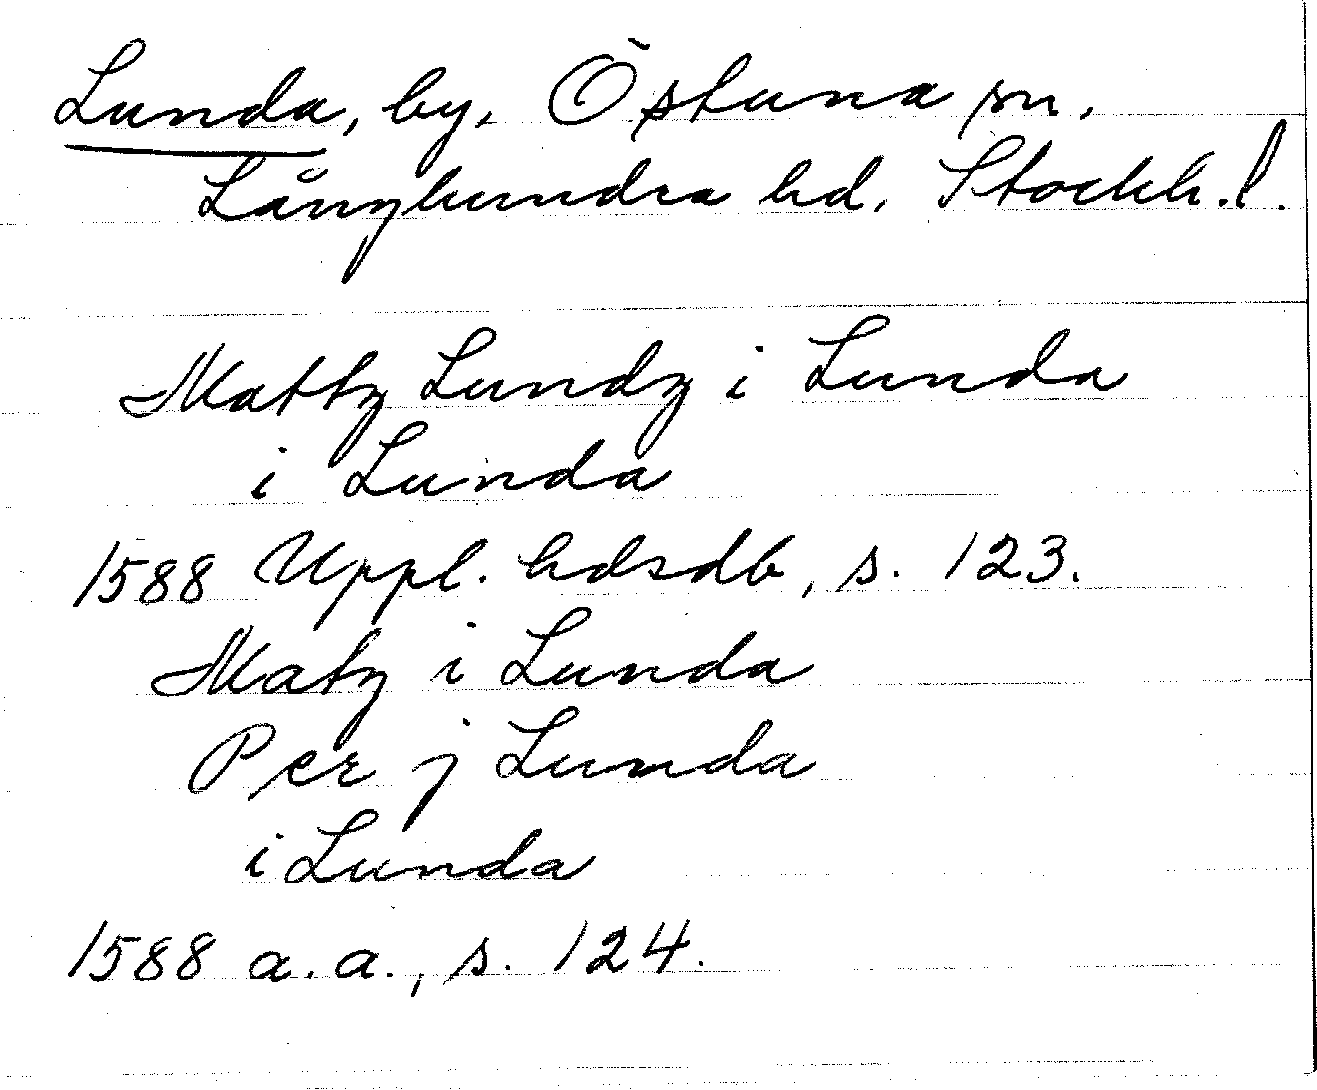 Lunda, by, Östuna sn.
Långhundra hd, Stockh. l.
Mattz Lundz i Lunda
i Lunda
1588 Uppl. hdsdb, s. 123.
Matz i Lunda
Per j Lunda
i Lunda
1588 a.a., s. 124.